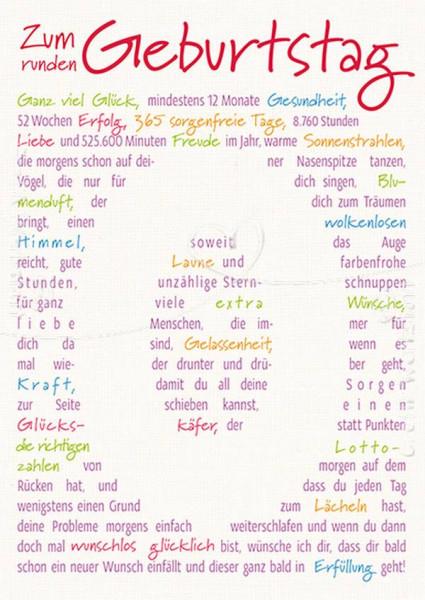 Zum
runden Geburtstag
Ganz viel Glück, mindestens 12 Monate Gesundheit,
52 Wochen Erfolg, 365 sorgenfreie Tage, 8.760 Stunden
Liebe und 525.600 Minuten Freude im Jahr, warme Sonnenstrahlen,
die morgens schon auf dei- ner Nasenspitze tanzen,
Vögel, die nur für dich singen, Blu-
menduft, der dich zum Träumen
bringt, einen wolkenlosen
Himmel, soweit das Auge
reicht, gute Laune und farbenfrohe
Stunden, unzählige Stern- schnuppen
für ganz viele extra Wünsche,
liebe Menschen, die im- mer für
dich da sind, Gelassenheit, wenn es
mal wie- der drunter und drü- ber geht,
Kraft, damit du all deine Sorgen
zur Seite schieben kannst, einen
Glücks- käfer, der statt Punkten
die richtigen Lotto-
zahlen von morgen auf dem
Rücken hat, und dass du jeden Tag
wenigstens einen Grund zum Lächeln hast,
deine Probleme morgens einfach weiterschlafen und wenn du dann
doch mal wunschlos glücklich bist, wünsche ich dir, dass dir bald
schon ein neuer Wunsch einfällt und dieser ganz bald in Erfüllung geht!